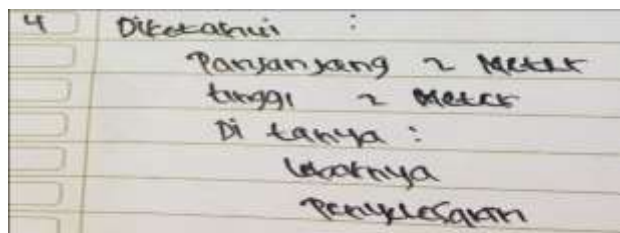 4 Diketahui :
Panjanjang 2 Meter
tinggi 2 Meter
Di tanya :
lebarnya
Penyelesaian